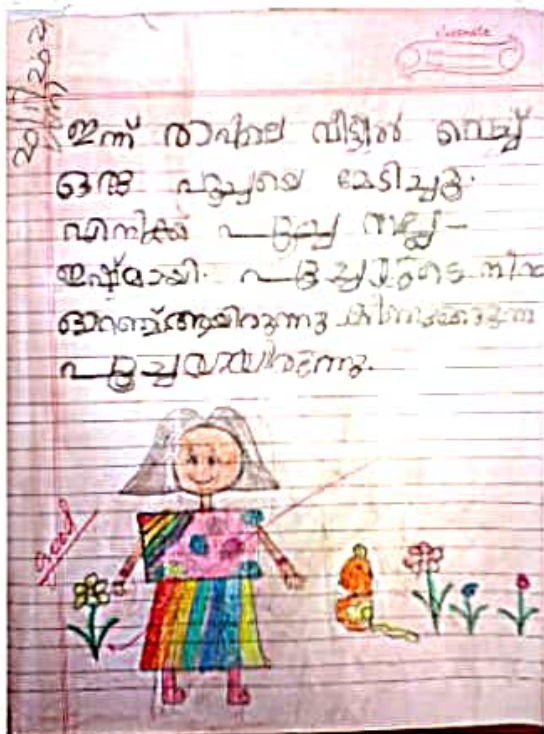 classmate
ഇന്ന് രാവിലെ വീട്ടിൽ വെച്ച്
ഒരു പൂച്ചയെ മേടിച്ചു.
എനിക്ക് പൂച്ച നല്ല
ഇഷ്ടമായി. പൂച്ചയുടെ നിറം
ഓറഞ്ച്ആയിരുന്നു
പൂച്ചയായിരുന്നു.
Good